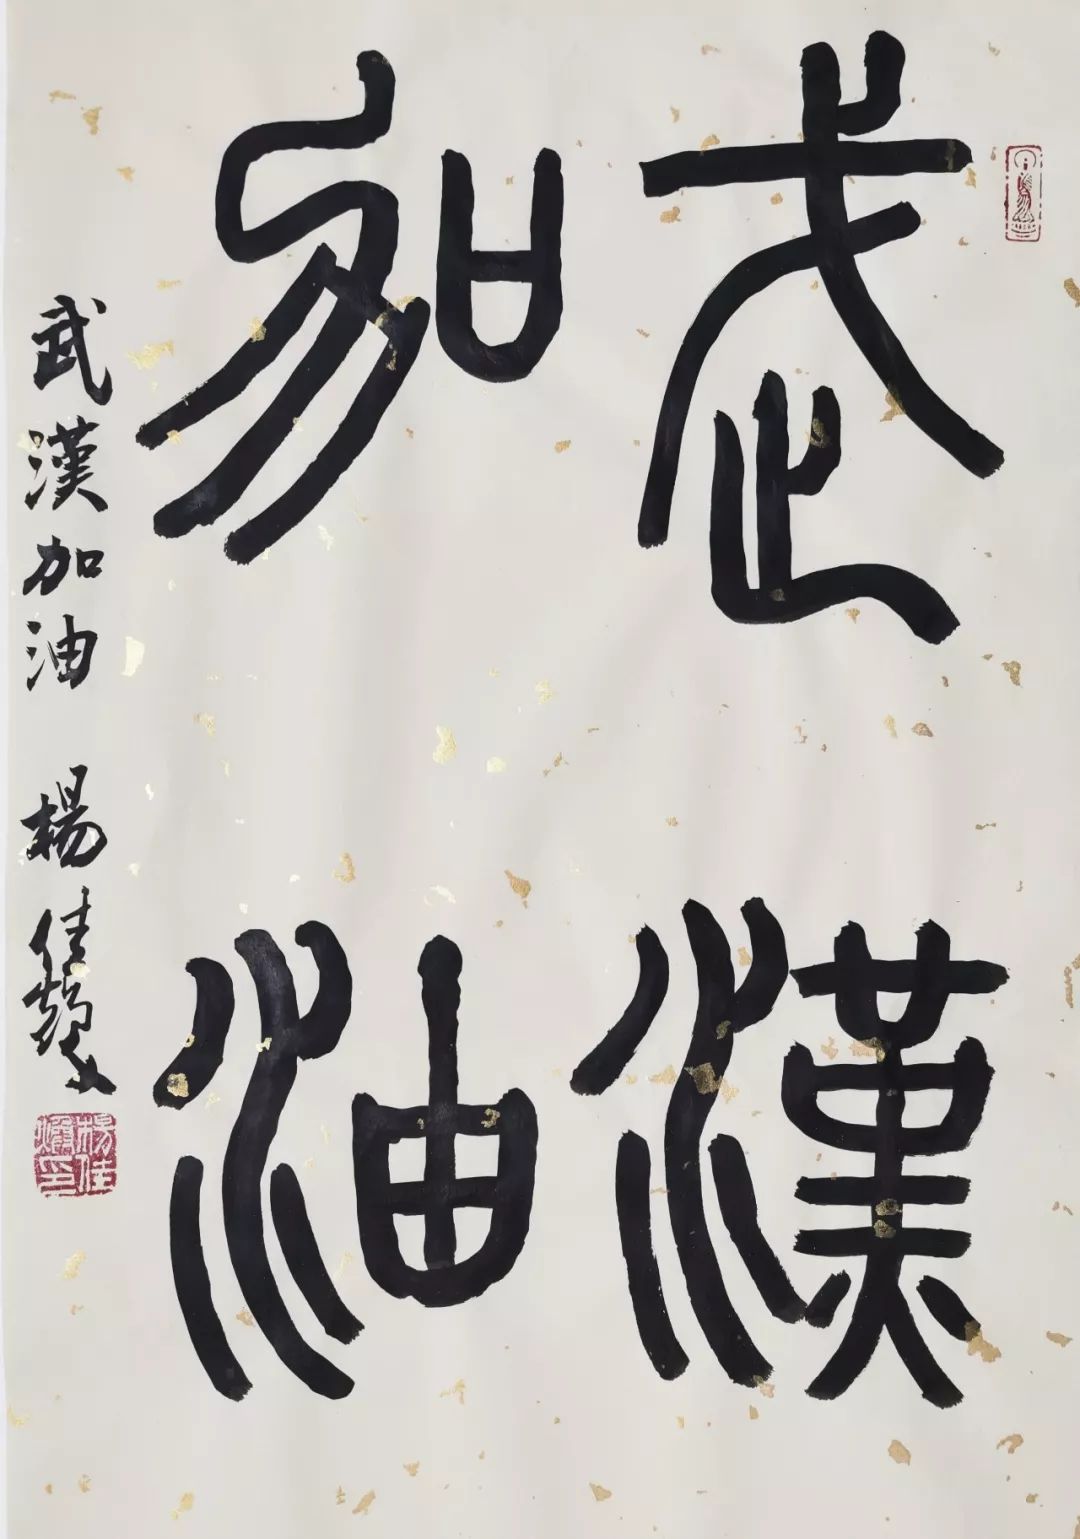 武漢
加油
武漢加油 楊佳
楊佳 印